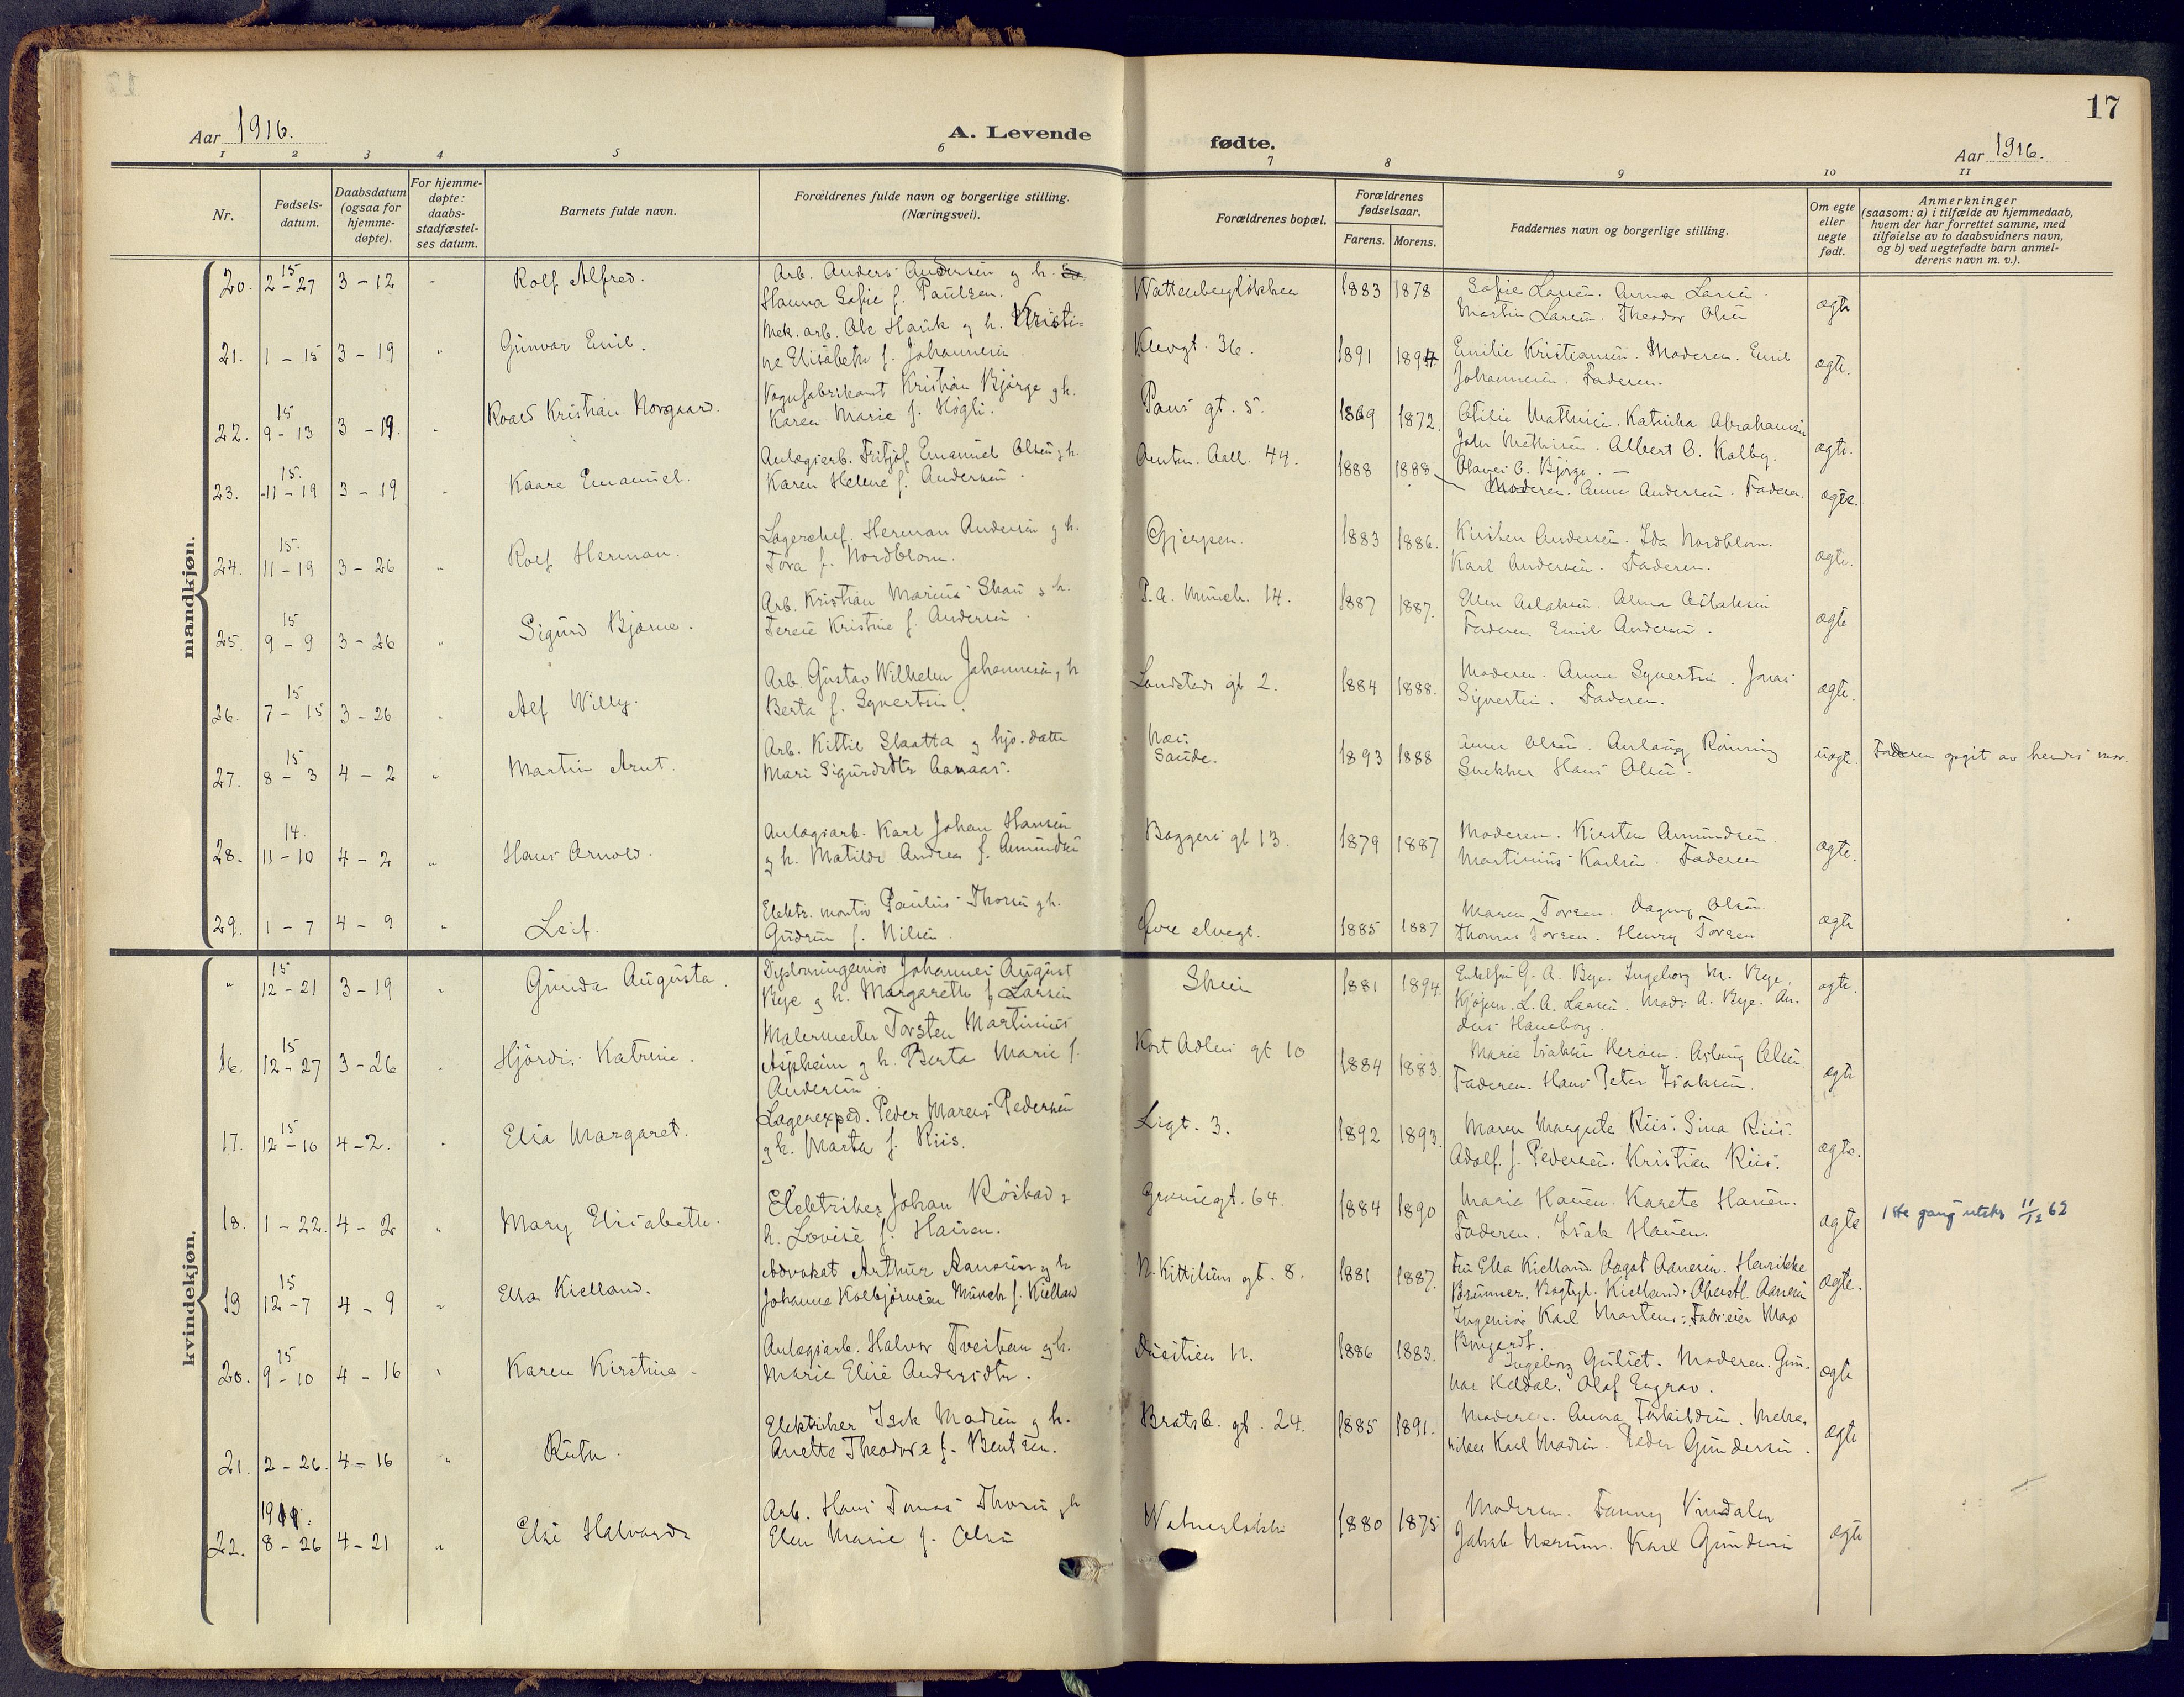 17
Aar 1916.
A. Levende
fødte.
Aar 1916.
1 2 3 4 5 6 7 8 9 10 11
Nr.
Fødsels-
datum.
Daabsdatum
(ogsaa for
hjemme-
døpte).
For hjemme-
døpte:
daabs-
stadfæstel-
ses datum.
Barnets fulde navn.
Forældrenes fulde navn og borgerlige stilling.
(Næringsvei).
Forældrenes bopæl.
Forældrenes
fødselsaar.
Farens. Morens.
Faddernes navn og borgerlige stilling.
Om egte
eller
uegte
født.
Anmerkninger
(saasom: a) i tilfælde av hjemmedaab,
hvem der har forrettet samme, med
tilføielse av to daabsvidners navn,
og b) ved uegtefødte barn anmel-
derens navn m. v.).
mandkjøn.
20. 15 2-27 3-12 Rolf Alfred. Arb. Anders Andersen g h.
Hanna Sofie f. Paulsen. Wattenbergløkken 1883 1878 Sofie Larsen. Anna Larsen.
Martin Larsen. Theodor Olsen ægte
21. 1-15 3-19 " Gunvar Emil. Mek. arb. Ole Hauk g h. Kristi-
ne Elisabeth f. Johannesen. Klevgt. 36. 1891 1894. Emilie Kristiansen. Moderen. Emil
Johannesen. Faderen. ægte.
22. 15 9-13 3-19. Roald Kristian Norgaard. Vognfabrikant Kristian Bjørge g h.
Karen Marie f. Høgli. Paus gt. 5. 1869 1872. Otilie Mathisen. Katrinka Abrahamsen
John Mathisen. Albert O. Kalby.
Olaves O. Bjørge. ægte.
23. 15. 11-19 3-19 Kaare Emanuel. Anlægsarb. Fritjof Emanuel Olsen g h.
Karen Helene f. Andersen. Amtm. Aall. 44. 1888 1888. Moderen. Anne Andersen. Faderen. ægte.
24. 15. 11-19 3-26 " Rolf Herman. Lagerchef. Herman Andersen g h.
Tora f. Nordblom. Gjerpen. 1883 1886. Kirsten Andersen. Ida Nordblom.
Karl Andersen. Faderen. ægte.
25. 15 9-9 3-26 " Sigurd Bjarne. Arb. Kristian Marius Skau g h.
Terese Kristine f. Andersen. P.a. Munch. 14. 1887 1887. Ellen Aslaksen. Alma Aslaksen
Faderen. Emil Andersen. ægte
26. 15 7-15 3-26 Alf Willy. Arb. Gustav Wilhelm Johannesen g h
Berta f. Syvertsen. Landstads gt 2. 1884 1888. Moderen. Anne Syvertsen. Jonas
Syvertsen. Faderen. ægte.
27. 15 8-3 4-2 " Martin Arnt. Arb. Kittil Slaatta g hjv. datter
Mari Sigurdsdtr Aanaas. Næs.
Saude. 1893 1888 Anne Olsen. Anlaug Rønning
Snekker Hans Olsen. uægte. Faderen opgit av hendes mor.
28. 14. 11-10 4-2 " Hans Arnold. Anlægsarb. Karl Johan Hansen
g h. Matilde Andrea f. Amundsen Baggers gt 13. 1879 1887 Moderen. Kirsten Amundsen.
Martinius Karlsen. Faderen ægte.
29. 1-7 4-9 " Leif. Elektr. montør Paulus Thorsen g h.
Gudrun f. Nilsen. Øvre elvegt. 1885 1887 Maren Torsen. Dagny Olsen.
Thomas Torsen. Henry Torsen ægte
kvindekjøn.
" 15 12-21 3-19 Gunda Augusta. Diplomingeniør Johannes August
Bye g h. Margarethe f. Larsen Skien 1881 1894. Enkefru G. A. Bye. Ingeborg M. Bye.
Kjøpm. L. A. Larsen. Mads A. Bye. An-
ders Haneborg. ægte.
16. 15 12-27 3-26 Hjørdis Katrine. Malermester Torsten Martinius
Aspheim g h. Berta Marie f.
Andersen Kort Adlers gt 10 1884 1883. Marie Isaksen Herøen. Aslaug Olsen
Faderen. Hans Peter Isaksen. ægte
17. 15 12-10 4-2. Elsa Margaret. Lagerexped. Peder Marius Pedersen
g h. Marta f. Riis. Ligt. 3. 1892 1893. Maren Margrete Riis. Sina Riis.
Adolf J. Pedersen. Kristian Riis. ægte.
18. 1-22. 4-2 " Mary Elisabeth. Elektriker Johan Røsbad g
h. Lovise f. Hansen. Grønnegt. 64. 1884 1890 Marie Hansen. Karete Hansen.
Faderen. Isak Hansen. ægte 1ste gang utskr 11/12 62
19 15 12-7 4-9 " Ella Kielland. Advokat Arthur Aanesen g h
Johanne Kolbjørnsen Munch f. Kielland N. Kittilsens gt. 8. 1881 1887. Fru Ella Kielland. Aagot Aanesen. Henrikke
Brunner. Bogtyk. Kielland. Oberstl. Aanesen
Ingeniør Karl Martens. Fabr.eier Max
Bungardt. ægte.
20. 15 9-10 4-16 " Karen Kirstine. Anlægsarb. Halvor Tveitan g h.
Marie Elise Andersdtr. Duestien N. 1886 1883. Ingeborg Guliet. Moderen. Gun-
nar Heldal. Olaf Engrav. ægte
21. 2-26. 4-16 " Ruth. Elektriker Isak Madsen g h.
Anette Theodora f. Bentsen. Bratsb. gt. 24. 1885 1891. Moderen. Anna Torkildsen. Meka-
niker Karl Madsen. Peder Gundersen. ægte
22. 1911: 8-26 4-21 " Else Halvarda Arb. Hans Tomas Thorsen g h
Elen Marie f. Olsen 1880 1875 Moderen. Fanny Vindalen
Jakob Nærum. Karl Gundersen ægte